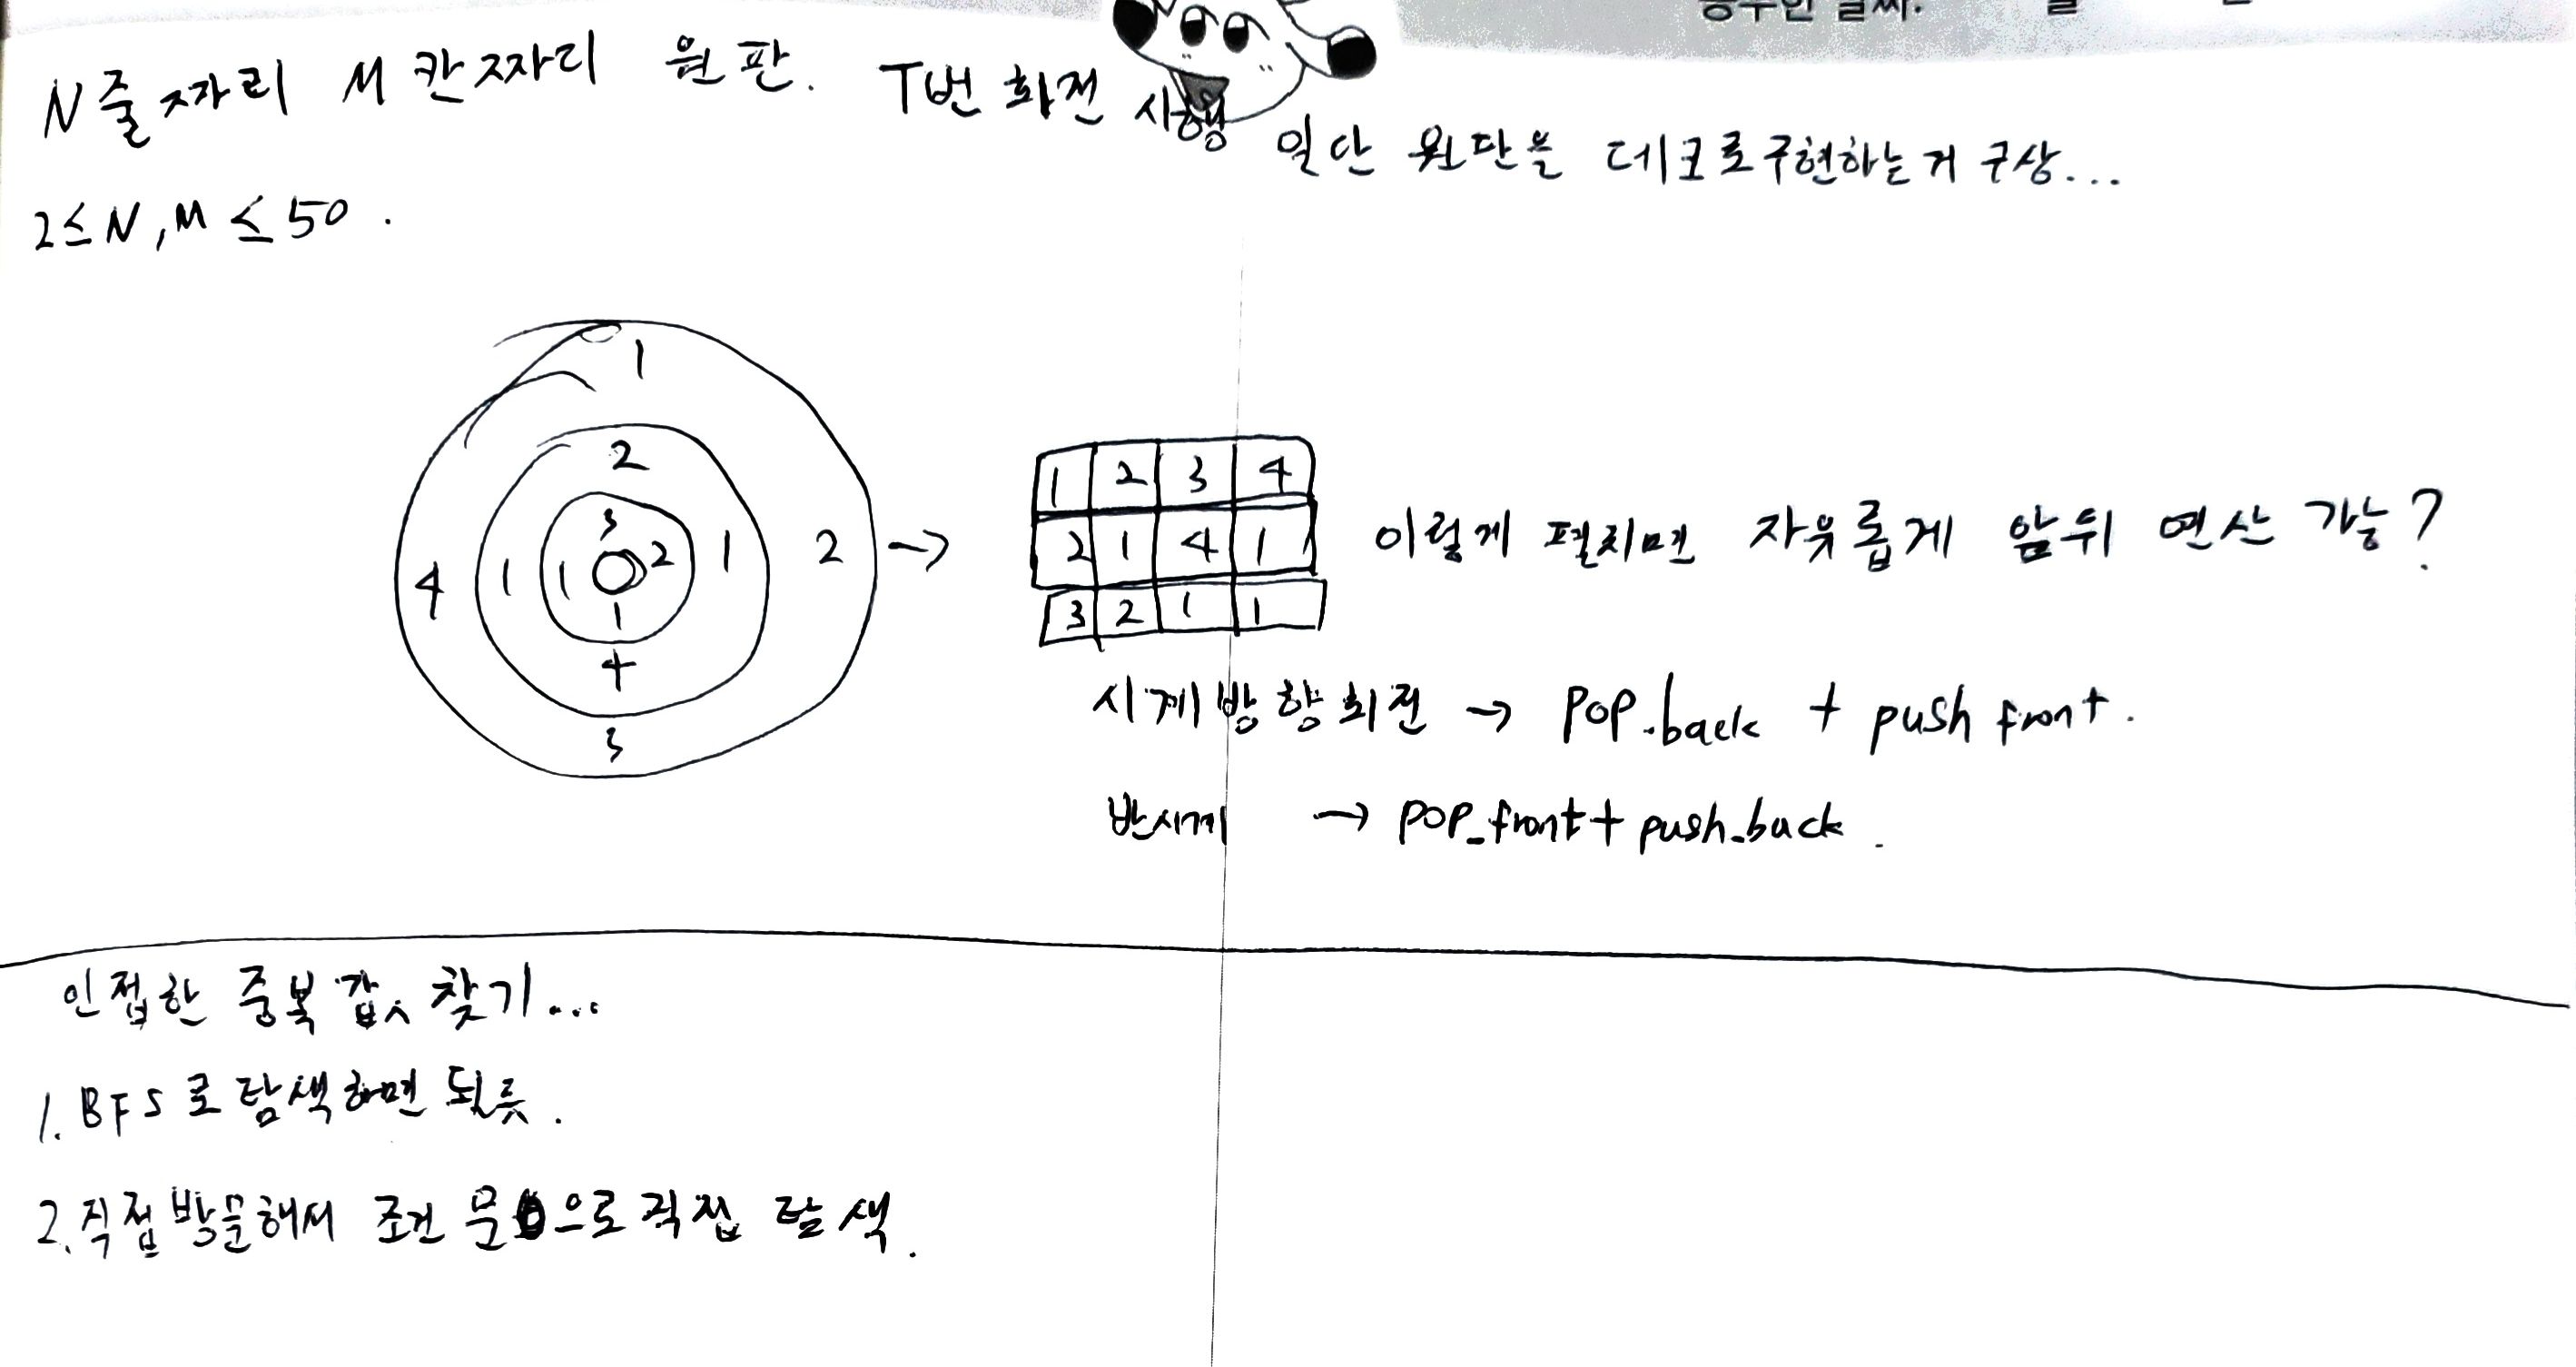 N줄짜리 M칸짜리 원판. T번 회전 시행
일단 원판을 데크로구현하는거 구상...
2≤N,M≤50.
1
2
3
1 2 3 4
2 1 4 1
3 2 1 1
4 1 1 2 1 2 →
1
4
3
이렇게 펼치면 자유롭게 앞뒤 연산 가능?
시계방향회전 → pop.back + push front.
반시계 → pop_front + push_back.
인접한 중복값 찾기...
1. BFS로 탐색하면 될듯.
2. 직접방문해서 조건문으로직접 탐색.